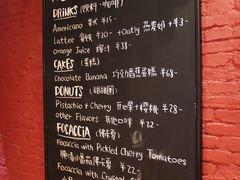 DRINKS (饮料·咖啡)
Americano 美式 ¥15-
Lattee 拿铁 ¥20- +Oatly 燕麦奶 +¥3-
Orange Juice 橙汁 ¥38-
CAKES (蛋糕)
Chocolate Banana 巧克力香蕉蛋糕 ¥68-
DONUTS (甜甜圈)
Pistachio + Cherry 开心果+樱桃 ¥28-
other Flavors 其他口味 ¥22-
FOCACCIA
Focaccia with Pickled Cherry Tomatoes
¥22-
Focaccia with